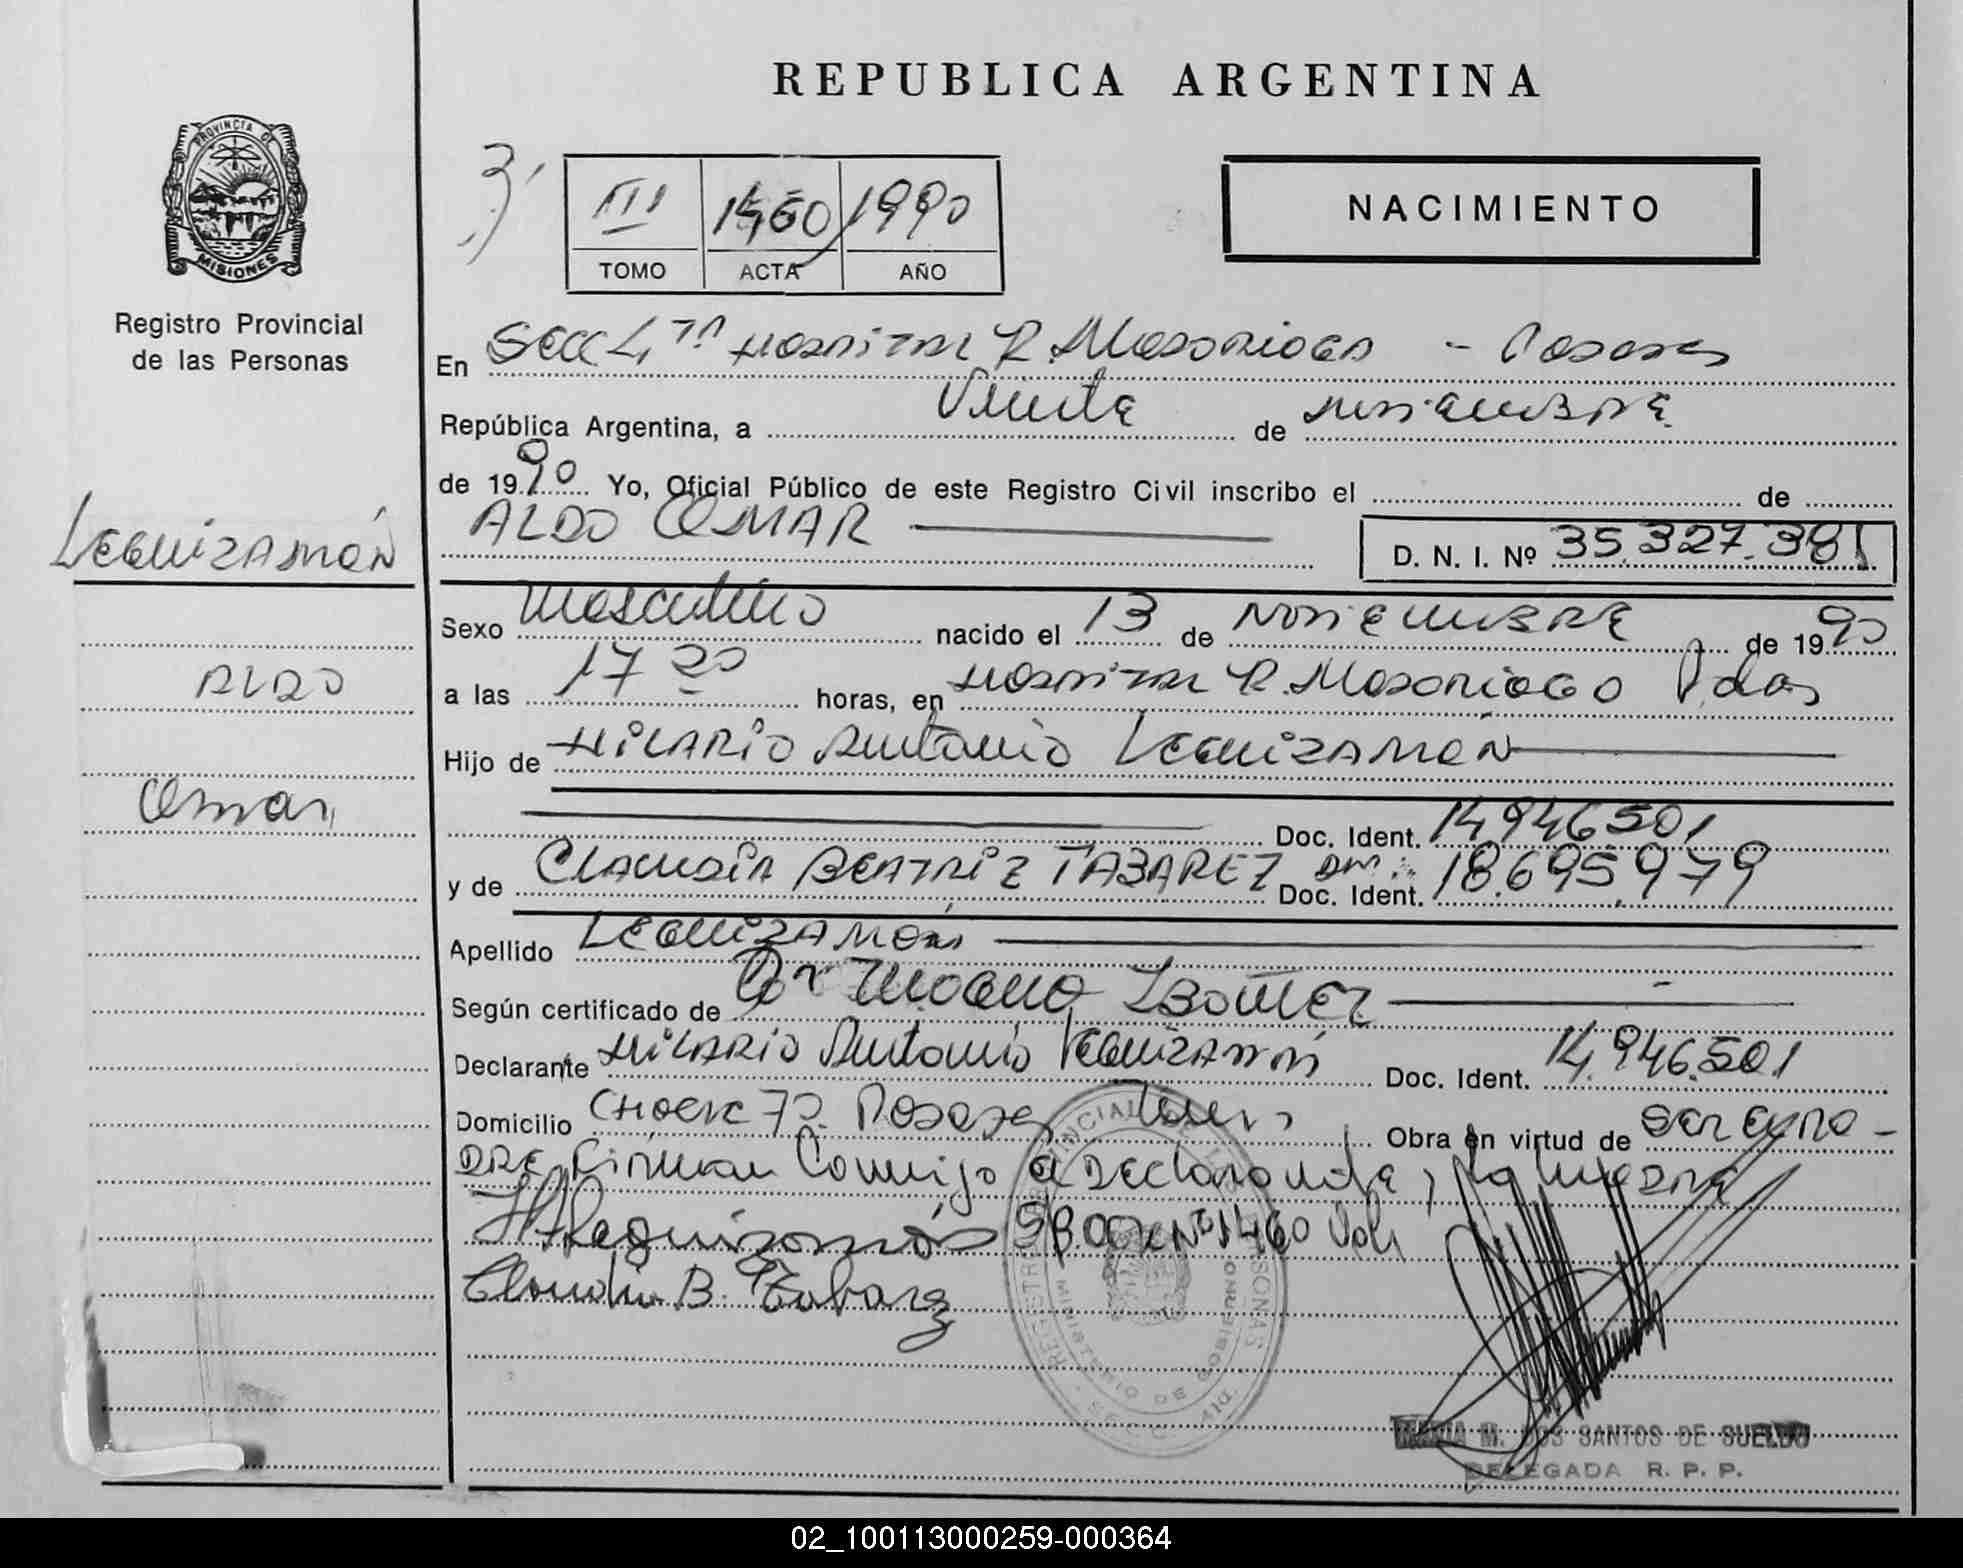 REPUBLICA ARGENTINA
PROVINCIA DE
MISIONES
Registro Provincial
de las Personas
III 1460 1990
TOMO ACTA AÑO
NACIMIENTO
En Secc 4ta Hospital R. Madariaga - Posadas
República Argentina, a Veinte de noviembre
de 1990 Yo, Oficial Público de este Registro Civil inscribo el de
ALDO OMAR
D. N. I. Nº 35.327.381
Leguizamón
Aldo
Omar
Sexo Masculino nacido el 13 de Noviembre de 1990
a las 17 20 horas, en Hospital R. Madariaga Pdas
Hijo de Hilario Antonio Leguizamón
Doc. Ident. 14946501
y de Claudia Beatriz TABAREZ DNI: Doc. Ident. 18.695.979
Apellido Leguizamón
Según certificado de Dr
Declarante Hilario Antonio Leguizamón Doc. Ident. 14.946.501
Domicilio 70 Posadas Obra en virtud de ser el pa-
dre Firman Conmigo el Declarante y la madre
HALeguizamón S/B Nº 1460 Vale
Claudia B. Tabarez
REGISTRO PROVINCIAL DE LAS PERSONAS
MINISTERIO DE GOBIERNO
MARIA M. DOS SANTOS DE SUELDO
DELEGADA R. P. P.
02_100113000259-000364